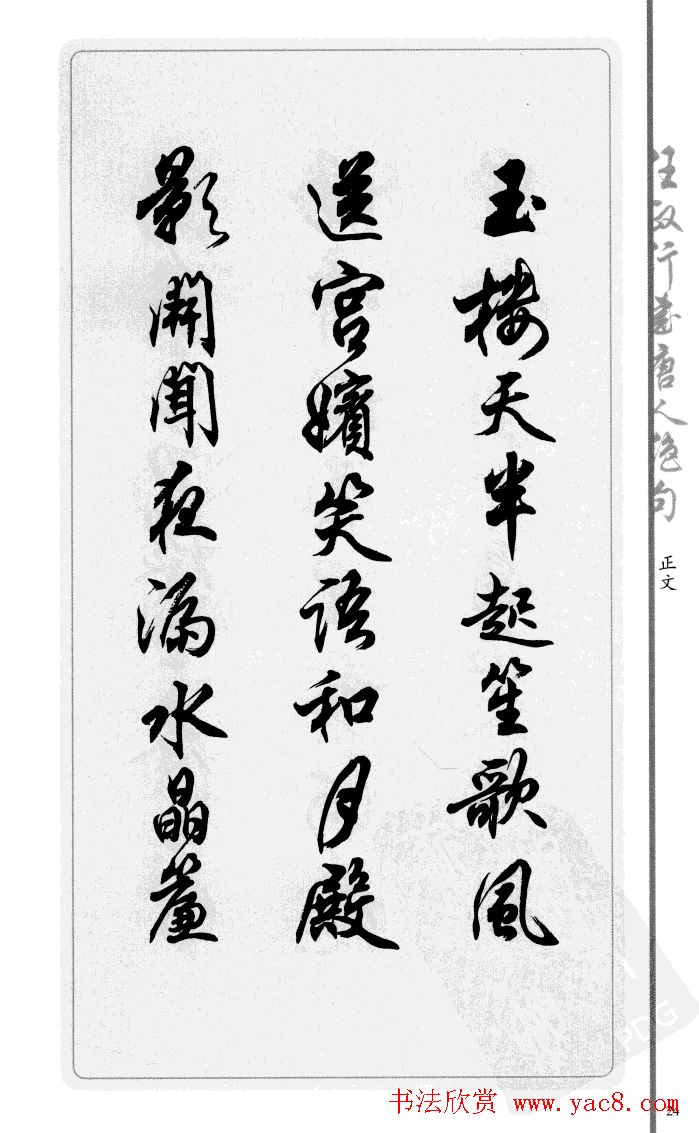 任政行書唐人絕句
正文
玉樓天半起笙歌風
送宮嬪笑語和月殿
影開聞夜漏水晶簾
书法欣赏 www.yac8.com
24
PDG